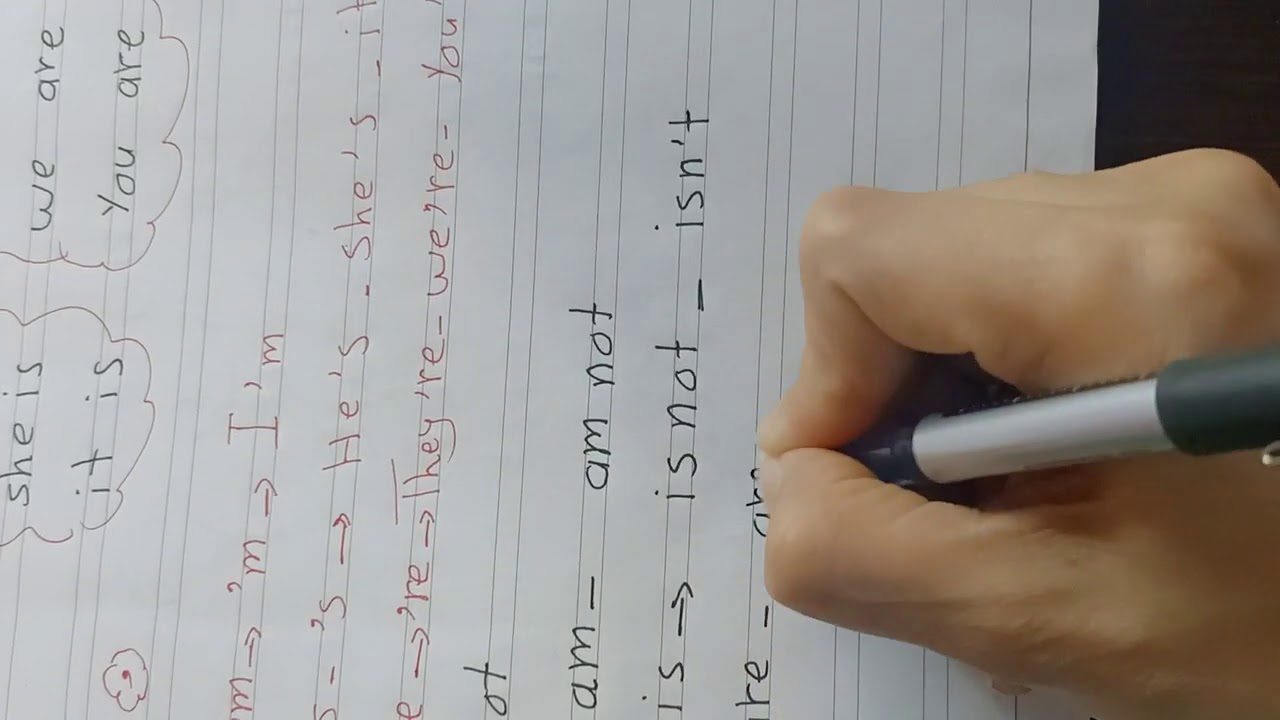 she is we are
it is You are
m → 'm → I'm
s - 's → He's - she's - it
e → 're → They're - we're - You
ot
am - am not
is → is not - isn't
re - ar